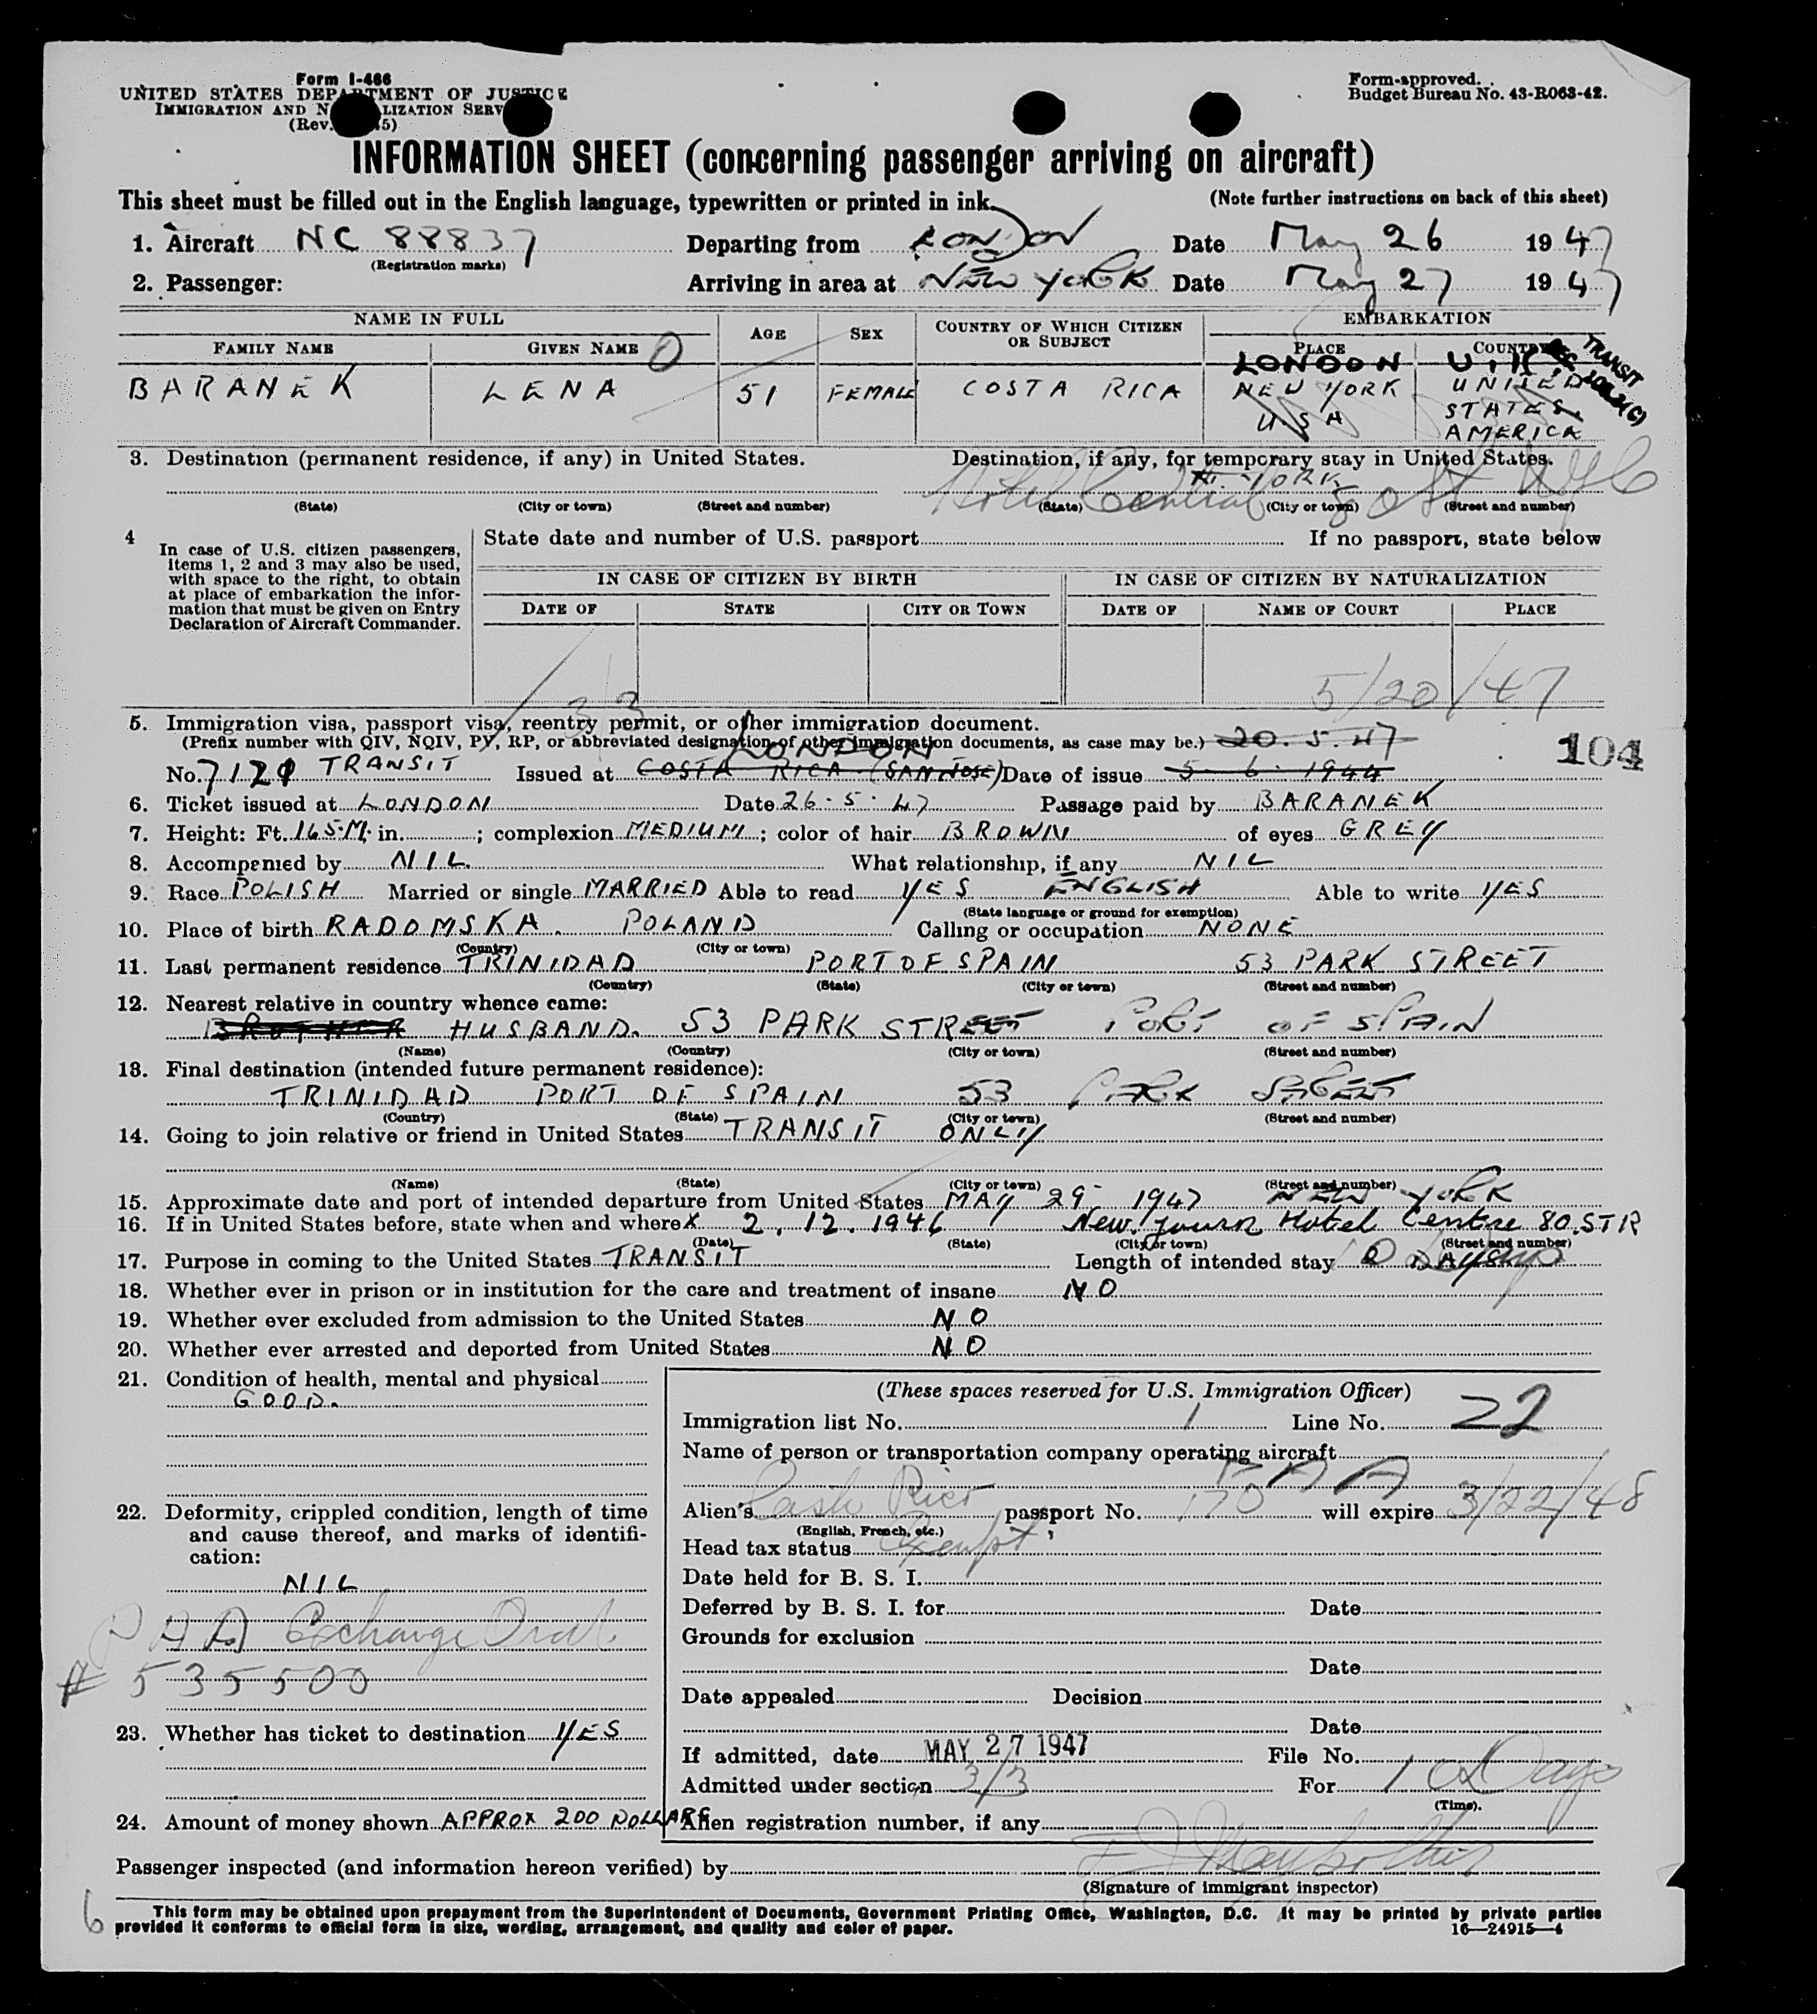 Form I-466
UNITED STATES DEPARTMENT OF JUSTICE
IMMIGRATION AND N LIZATION SERV
(Rev. 5)
Form approved.
Budget Bureau No. 43-R063-42.
INFORMATION SHEET (concerning passenger arriving on aircraft)
This sheet must be filled out in the English language, typewritten or printed in ink.
(Note further instructions on back of this sheet)
1. Aircraft NC 88837 Departing from LONDON Date May 26 1947
(Registration marks)
2. Passenger: Arriving in area at NEW YORK Date May 27 1947
NAME IN FULL
AGE SEX COUNTRY OF WHICH CITIZEN OR SUBJECT EMBARKATION
FAMILY NAME GIVEN NAME PLACE COUNTRY
LONDON U.K. SEC TRANSIT
BARANEK LENA 51 FEMALE COSTA RICA NEW YORK UNITED
USA STATES
AMERICA
3. Destination (permanent residence, if any) in United States. Destination, if any, for temporary stay in United States.
N. YORK
Hotel Central 80 St NYC
(State) (City or town) (Street and number) (State) (City or town) (Street and number)
4 In case of U.S. citizen passengers, items 1, 2 and 3 may also be used, with space to the right, to obtain at place of embarkation the information that must be given on Entry Declaration of Aircraft Commander.
State date and number of U.S. passport If no passport, state below
IN CASE OF CITIZEN BY BIRTH IN CASE OF CITIZEN BY NATURALIZATION
DATE OF STATE CITY OR TOWN DATE OF NAME OF COURT PLACE
5/20/47
3 3
5. Immigration visa, passport visa, reentry permit, or other immigration document.
(Prefix number with QIV, NQIV, PV, RP, or abbreviated designation of other immigration documents, as case may be.) 20. 5. 47
LONDON
104
No. 7121 TRANSIT Issued at COSTA RICA (SAN JOSE) Date of issue 5 6 1944
6. Ticket issued at LONDON Date 26.5.47 Passage paid by BARANEK
7. Height: Ft. 165.M. in. ; complexion MEDIUM ; color of hair BROWN of eyes GREY
8. Accompanied by NIL. What relationship, if any NIL
9. Race POLISH Married or single MARRIED Able to read YES ENGLISH Able to write YES
(State language or ground for exemption)
10. Place of birth RADOMSKA. POLAND Calling or occupation NONE
(Country) (City or town)
11. Last permanent residence TRINIDAD PORT OF SPAIN 53 PARK STREET
(Country) (State) (City or town) (Street and number)
12. Nearest relative in country whence came:
BROTHER HUSBAND. 53 PARK STREET PORT OF SPAIN
(Name) (Country) (City or town) (Street and number)
13. Final destination (intended future permanent residence):
TRINIDAD PORT OF SPAIN 53 PARK STREET
(Country) (State) (City or town) (Street and number)
14. Going to join relative or friend in United States TRANSIT ONLY
(Name) (State) (City or town) (Street and number)
15. Approximate date and port of intended departure from United States MAY 29 1947 NEW YORK
16. If in United States before, state when and where X 2.12.1946 New Hotel Centre 80.STR
(Date) (State) (City or town) (Street and number)
17. Purpose in coming to the United States TRANSIT Length of intended stay DAYS
18. Whether ever in prison or in institution for the care and treatment of insane NO
19. Whether ever excluded from admission to the United States NO
20. Whether ever arrested and deported from United States NO
21. Condition of health, mental and physical
GOOD.
22. Deformity, crippled condition, length of time
and cause thereof, and marks of identifi-
cation:
NIL
PAA Exchange Ord.
# 535500
23. Whether has ticket to destination YES
24. Amount of money shown APPROX 200 DOLLARS
(These spaces reserved for U.S. Immigration Officer)
Immigration list No. 1 Line No. 22
Name of person or transportation company operating aircraft
PAA
Alien's passport No. 170 will expire 3/22/48
(English, French, etc.)
Head tax status Exempt
Date held for B. S. I.
Deferred by B. S. I. for Date
Grounds for exclusion
Date
Date appealed Decision
Date
If admitted, date MAY 27 1947 File No.
Admitted under section 3/3 For 10 Days
(Time).
Alien registration number, if any
Passenger inspected (and information hereon verified) by
(Signature of immigrant inspector)
6
This form may be obtained upon prepayment from the Superintendent of Documents, Government Printing Office, Washington, D.C. It may be printed by private parties
provided it conforms to official form in size, wording, arrangement, and quality and color of paper.
16—24915-4